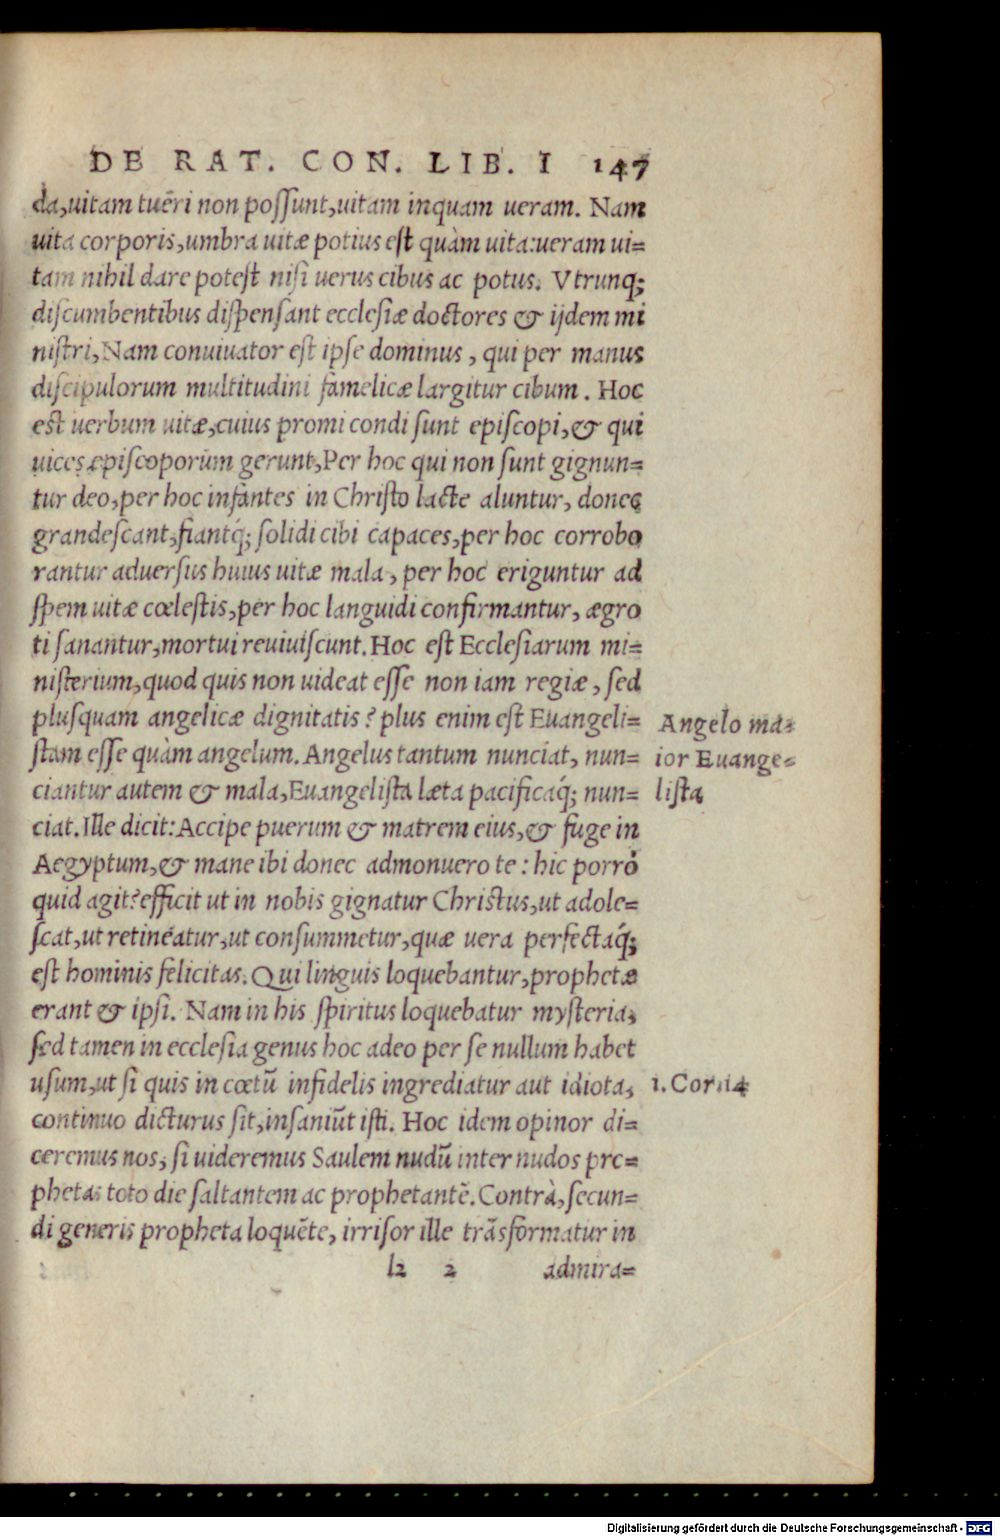 DE RAT. CON. LIB. I 147
da,uitam tuēri non possunt,uitam inquam ueram. Nam
uita corporis,umbra uitæ potius est quàm uita:ueram ui=
tam nihil dare potest nisi uerus cibus ac potus. Vtrunq;
discumbentibus dispensant ecclesiæ doctores & ijdem mi
nistri,Nam conuiuator est ipse dominus, qui per manus
discipulorum multitudini famelicæ largitur cibum. Hoc
est uerbum uitæ,cuius promi condi sunt episcopi,& qui
uices episcoporum gerunt,Per hoc qui non sunt gignun=
tur deo,per hoc infantes in Christo lacte aluntur, donec
grandescant,fiantq́; solidi cibi capaces,per hoc corrobo
rantur aduersus huius uitæ mala, per hoc eriguntur ad
spem uitæ cœlestis,per hoc languidi confirmantur, ægro
ti sanantur,mortui reuiuiscunt. Hoc est Ecclesiarum mi=
nisterium,quod quis non uideat esse non iam regiæ, sed
plusquam angelicæ dignitatis? plus enim est Euangeli=
stam esse quàm angelum. Angelus tantum nunciat, nun=
ciantur autem & mala,Euangelista læta pacificaq́; nun=
ciat. Ille dicit:Accipe puerum & matrem eius,& fuge in
Aegyptum,& mane ibi donec admonuero te: hic porrò
quid agit?efficit ut in nobis gignatur Christus,ut adole=
scat,ut retineatur,ut consummetur,quæ uera perfectaq́;
est hominis felicitas. Qui linguis loquebantur,prophetæ
erant & ipsi. Nam in his spiritus loquebatur mysteria,
sed tamen in ecclesia genus hoc adeo per se nullum habet
usum,ut si quis in cœtū infidelis ingrediatur aut idiota,
continuo dicturus sit,insaniūt isti. Hoc idem opinor di=
ceremus nos, si uideremus Saulem nudū inter nudos pro=
phetas toto die saltantem ac prophetantē. Contrà,secun=
di generis propheta loquēte, irrisor ille trāsformatur in
k 2 admira=
Angelo ma=
ior Euange=
lista
1. Cor. 14
Digitalisierung gefördert durch die Deutsche Forschungsgemeinschaft - DFG